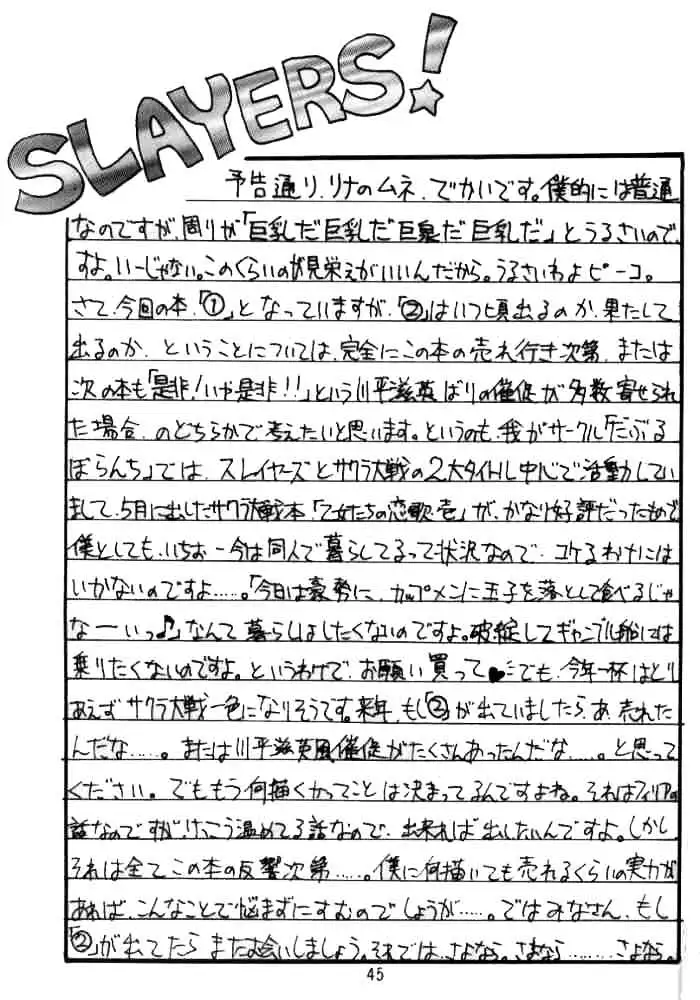 SLAYERS!
予告通り、リナのムネ、でかいです。僕的には普通
なのですが、周りが「巨乳だ巨乳だ巨乳だ巨乳だ」とうるさいので
すよ。いーじゃない。このくらいのが見栄えがいいんだから。うるさいわよピーコ。
さて、今回の本、「①」となっていますが、「②」はいつ頃出るのか、果たして
出るのか、ということについては、完全にこの本の売れ行き次第、または
次の本も「是非!いや是非!!」という川平滋英ばりの催促が多数寄せられ
た場合、のどちらかで考えたいと思います。というのも、我がサークル「だぶる
ぼらんち」では、スレイヤーズとサクラ大戦の2大タイトル中心で活動してい
まして、5月に出したサクラ大戦本「乙女たちの恋歌・壱」が、かなり好評だったもので
僕としても、いちおー今は同人で暮らしてるって状況なので、コケるわけには
いかないのですよ……。「今日は豪勢に、カップメンに玉子を落として食べるじゃ
なーいっ♪」なんて暮らしはしたくないのですよ。破綻してギャンブル船には
乗りたくないのですよ。というわけで、お願い買って♥…でも、今年一杯はとり
あえずサクラ大戦一色になりそうです。来年、もし「②」が出ていましたら、あ、売れた
んだな……。または川平滋英風催促がたくさんあったんだな……。と思って
ください。でももう何描くかってことは決まってるんですよね。それはフィリアの
話なのですが、けっこう温めてる話なので、出来れば出したいんですよ。しかし
それは全てこの本の反響次第……。僕に何描いても売れるくらいの実力が
あれば、こんなことで悩まずにすむのでしょうが……。ではみなさん、もし
「②」が出てたらまたお会いしましょう。それでは、さよなら。さよなら………さよなら。
45